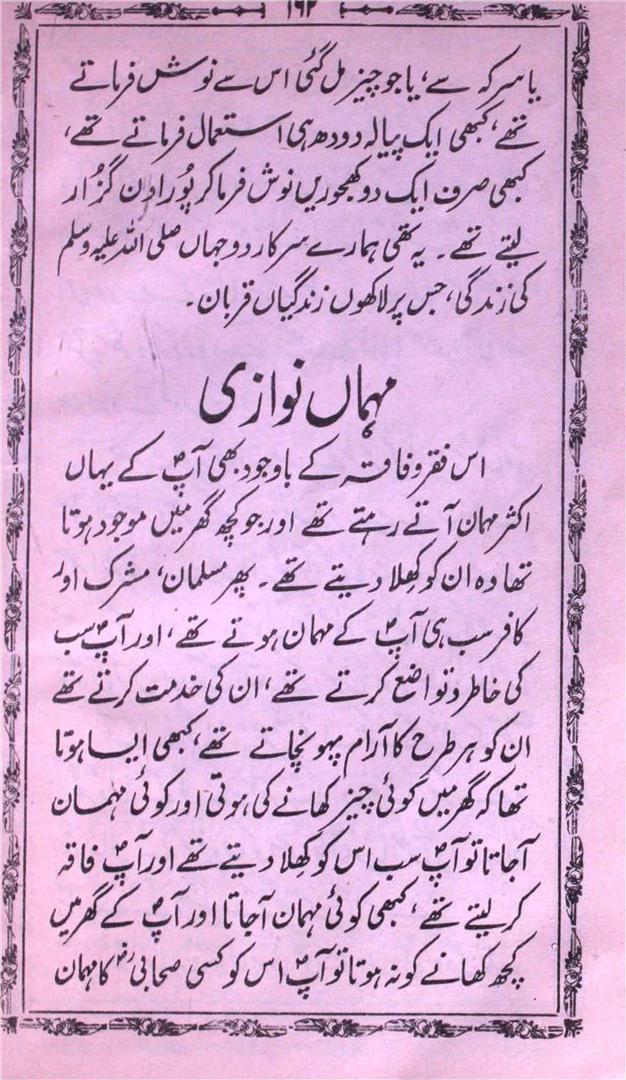 ۱۶۲
یا سرکہ سے، یا جو چیز مل گئی اس سے نوش فرماتے
تھے، کبھی ایک پیالہ دودھ ہی استعمال فرماتے تھے،
کبھی صرف ایک دو کھجوریں نوش فرما کر پُورا دن گزُار
لیتے تھے۔ یہ تھی ہمارے سرکار دو جہاں صلی اللہ علیہ وسلم
کی زندگی، جس پر لاکھوں زندگیاں قربان۔
مہماں نوازی
اس فقر و فاقہ کے باوجود بھی آپؐ کے یہاں
اکثر مہمان آتے رہتے تھے اور جو کچھ گھر میں موجود ہوتا
تھا وہ ان کو کھلا دیتے تھے۔ پھر مسلمان، مشرک اور
کافر سب ہی آپؐ کے مہمان ہوتے تھے، اور آپؐ سب
کی خاطر و تواضع کرتے تھے، ان کی خدمت کرتے تھے
ان کو ہر طرح کا آرام پہونچاتے تھے، کبھی ایسا ہوتا
تھا کہ گھر میں کوئی چیز کھانے کی ہوتی اور کوئی مہمان
آجاتا تو آپؐ سب اس کو کھلا دیتے تھے اور آپؐ فاقہ
کر لیتے تھے، کبھی کوئی مہمان آجاتا اور آپؐ کے گھر میں
کچھ کھانے کو نہ ہوتا تو آپؐ اس کو کسی صحابیؓ کا مہمان